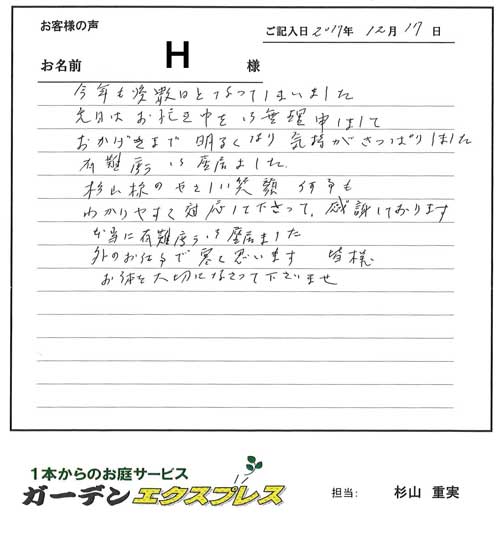 お客様の声
ご記入日 2017年 12月 17日
お名前 H 様
今年も後数日となってしまいました
先日はお忙しい中を御無理申しまして
おかげさまで明るくなり気持がさっぱりしました
有難度う御座居ました
杉山様のやさしい笑顔 何事も
わかりやすく対応して下さって、感謝しております
本当に有難度う御座居ました
外のお仕事で寒く思います 皆様
お体を大切になさって下さいませ
1本からのお庭サービス
ガーデンエクスプレス
担当: 杉山 重実